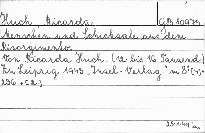 Huch, Ricarda
Menschen und Schicksale aus dem
Risorgimento.
Von Ricarda Huch. (12 bis 16 Tausend)
Zu Leipzig 1943 "Insel-Verlag"